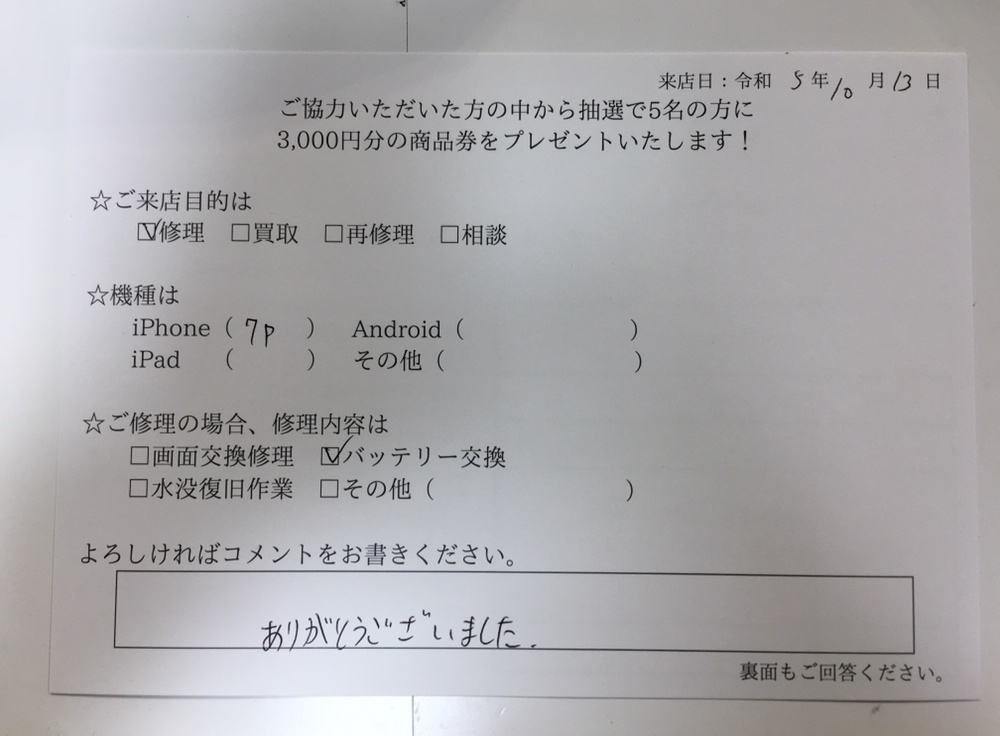 来店日：令和 5年10月13日
ご協力いただいた方の中から抽選で5名の方に
3,000円分の商品券をプレゼントいたします！
☆ご来店目的は
☑修理 □買取 □再修理 □相談
☆機種は
iPhone（ 7p ） Android（ ）
iPad （ ） その他（ ）
☆ご修理の場合、修理内容は
□画面交換修理 ☑バッテリー交換
□水没復旧作業 □その他（ ）
よろしければコメントをお書きください。
ありがとうございました.
裏面もご回答ください。